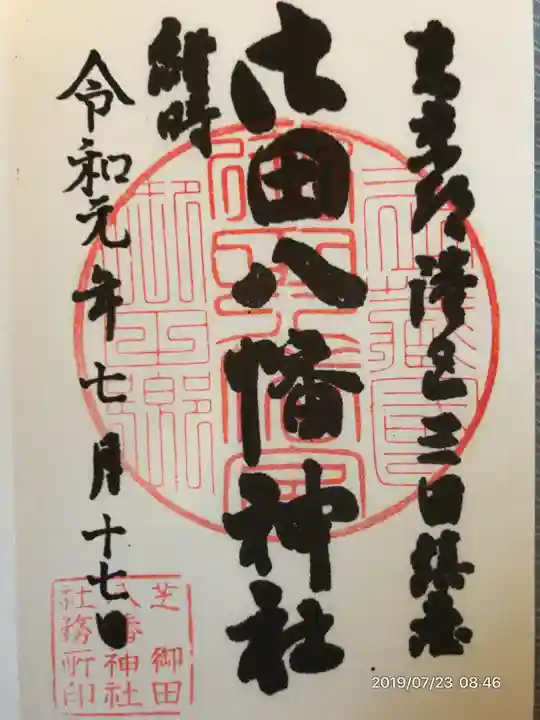 東京都港区三田鎮座
御田八幡神社
例時
令和元年七月十七日
芝御田
八幡神社
社務所印
2019/07/23 08:46